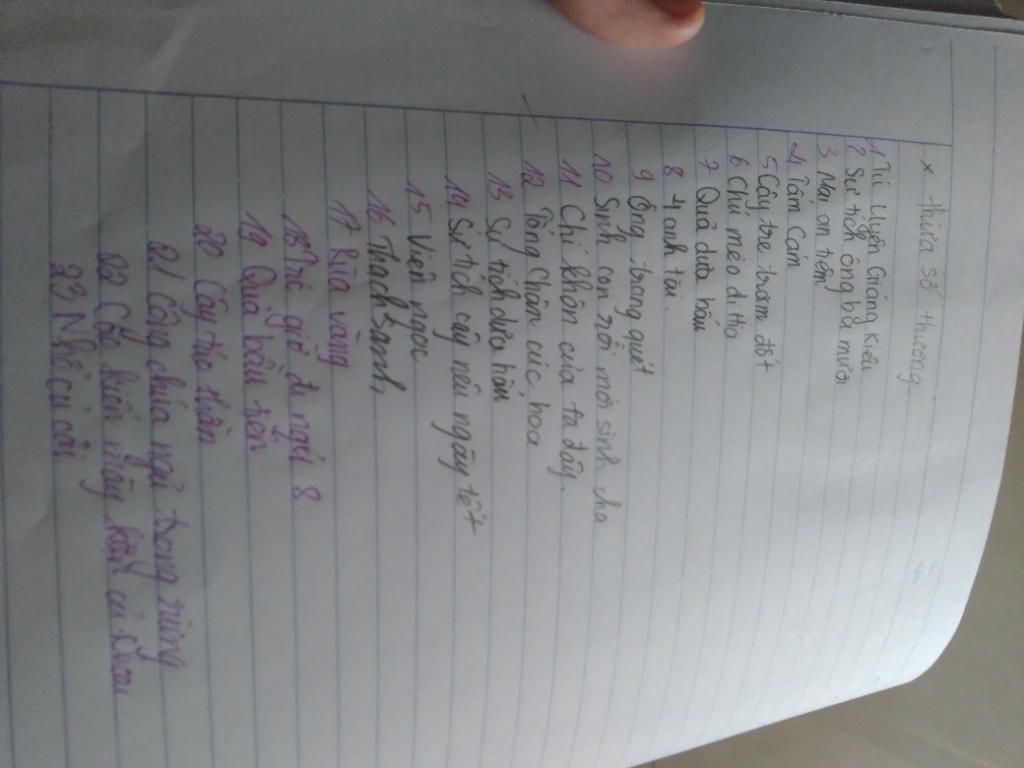 x thừa số thương
1 Tú Uyên Giáng Kiều
2 Sự tích ông ba mươi
3 Mai an tiêm
4 Tấm Cám
5 Cây tre trăm đốt
6 Chú mèo đi thơ
7 Quả dưa bầu
8 4 anh tài.
9 Ông trạng quét
10 Sinh con rồi mới sinh cha
11 Chí khôn của ta đây.
12 Tống Chân cúc hoa
13 Sự tích dưa hấu
14 Sự tích cây nêu ngày tết
15 Viên ngọc
16 Thạch Sanh
17 Rùa vàng
18 giờ đi ngài 8
19 Quả bầu tiên
20 Cây tre thần
21 Công chúa ngủ trong rừng
22 kiến
23 Nhổ củ cải